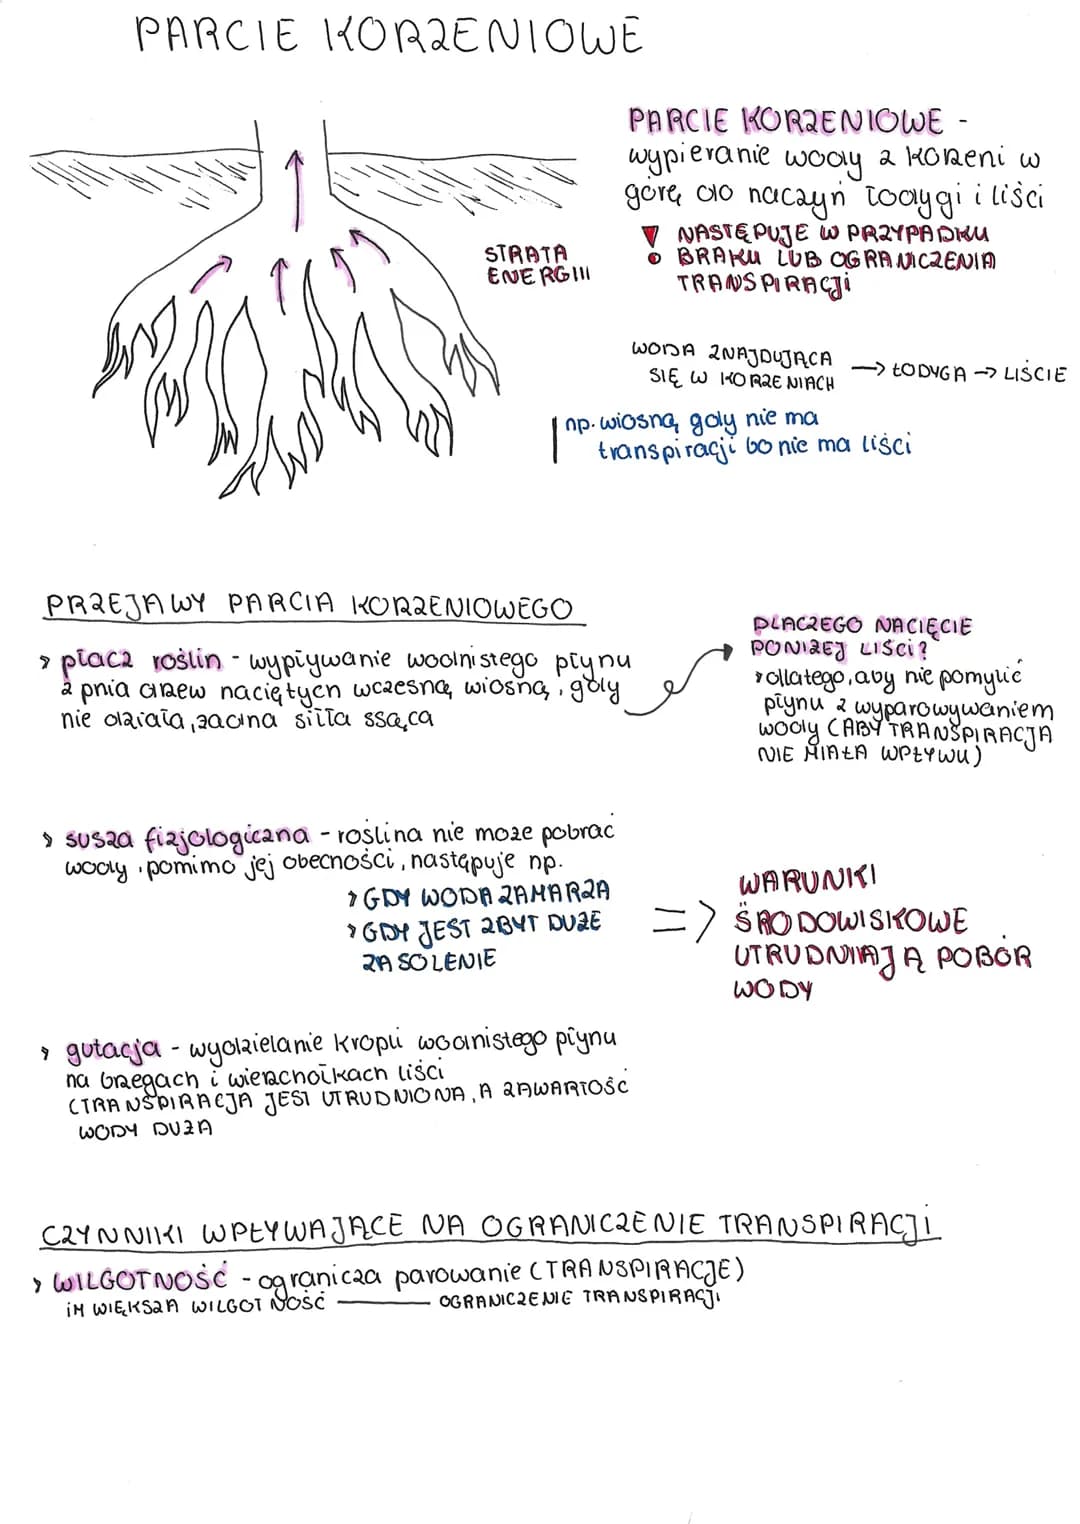 PARCIE KORZENIOWE
PARCIE KORZENIOWE -
wypieranie wody z korzeni w
górę do naczyń łodygi i liści
NASTĘPUJE W PRZYPADKU
BRAKU LUB OGRANICZENIA
TRANSPIRACJI
STRATA
ENERGII
WODA ZNAJDUJĄCA
SIĘ W KORZENIACH → ŁODYGA → LIŚCIE
np. wiosną, gdy nie ma
transpiracji bo nie ma liści
PRZEJAWY PARCIA KORZENIOWEGO
płacz roślin - wypływanie wodnistego płynu
z pnia drzew naciętych wczesną wiosną, gdy
nie działa żadna siłła ssąca
DLACZEGO NACIĘCIE
PONIŻEJ LIŚCI?
dlatego, aby nie pomylić
płynu z wyparowywaniem
wody (ABY TRANSPIRACJA
NIE MIAŁA WPŁYWU)
susza fizjologiczna - roślina nie może pobrać
wody, pomimo jej obecności, następuje np.
> GDY WODA ZAMARZA
> GDY JEST ZBYT DUŻE
ZASOLENIE
=> WARUNKI
ŚRODOWISKOWE
UTRUDNIAJĄ POBÓR
WODY
gutacja - wydzielanie kropli wodnistego płynu
na brzegach i wierzchołkach liści
(TRANSPIRACJA JEST UTRUDNIONA, A ZAWARTOŚĆ
WODY DUŻA
CZYNNIKI WPŁYWAJĄCE NA OGRANICZENIE TRANSPIRACJI
> WILGOTNOŚĆ - ogranicza parowanie (TRANSPIRACJE)
IM WIĘKSZA WILGOTNOŚĆ — OGRANICZENIE TRANSPIRACJI